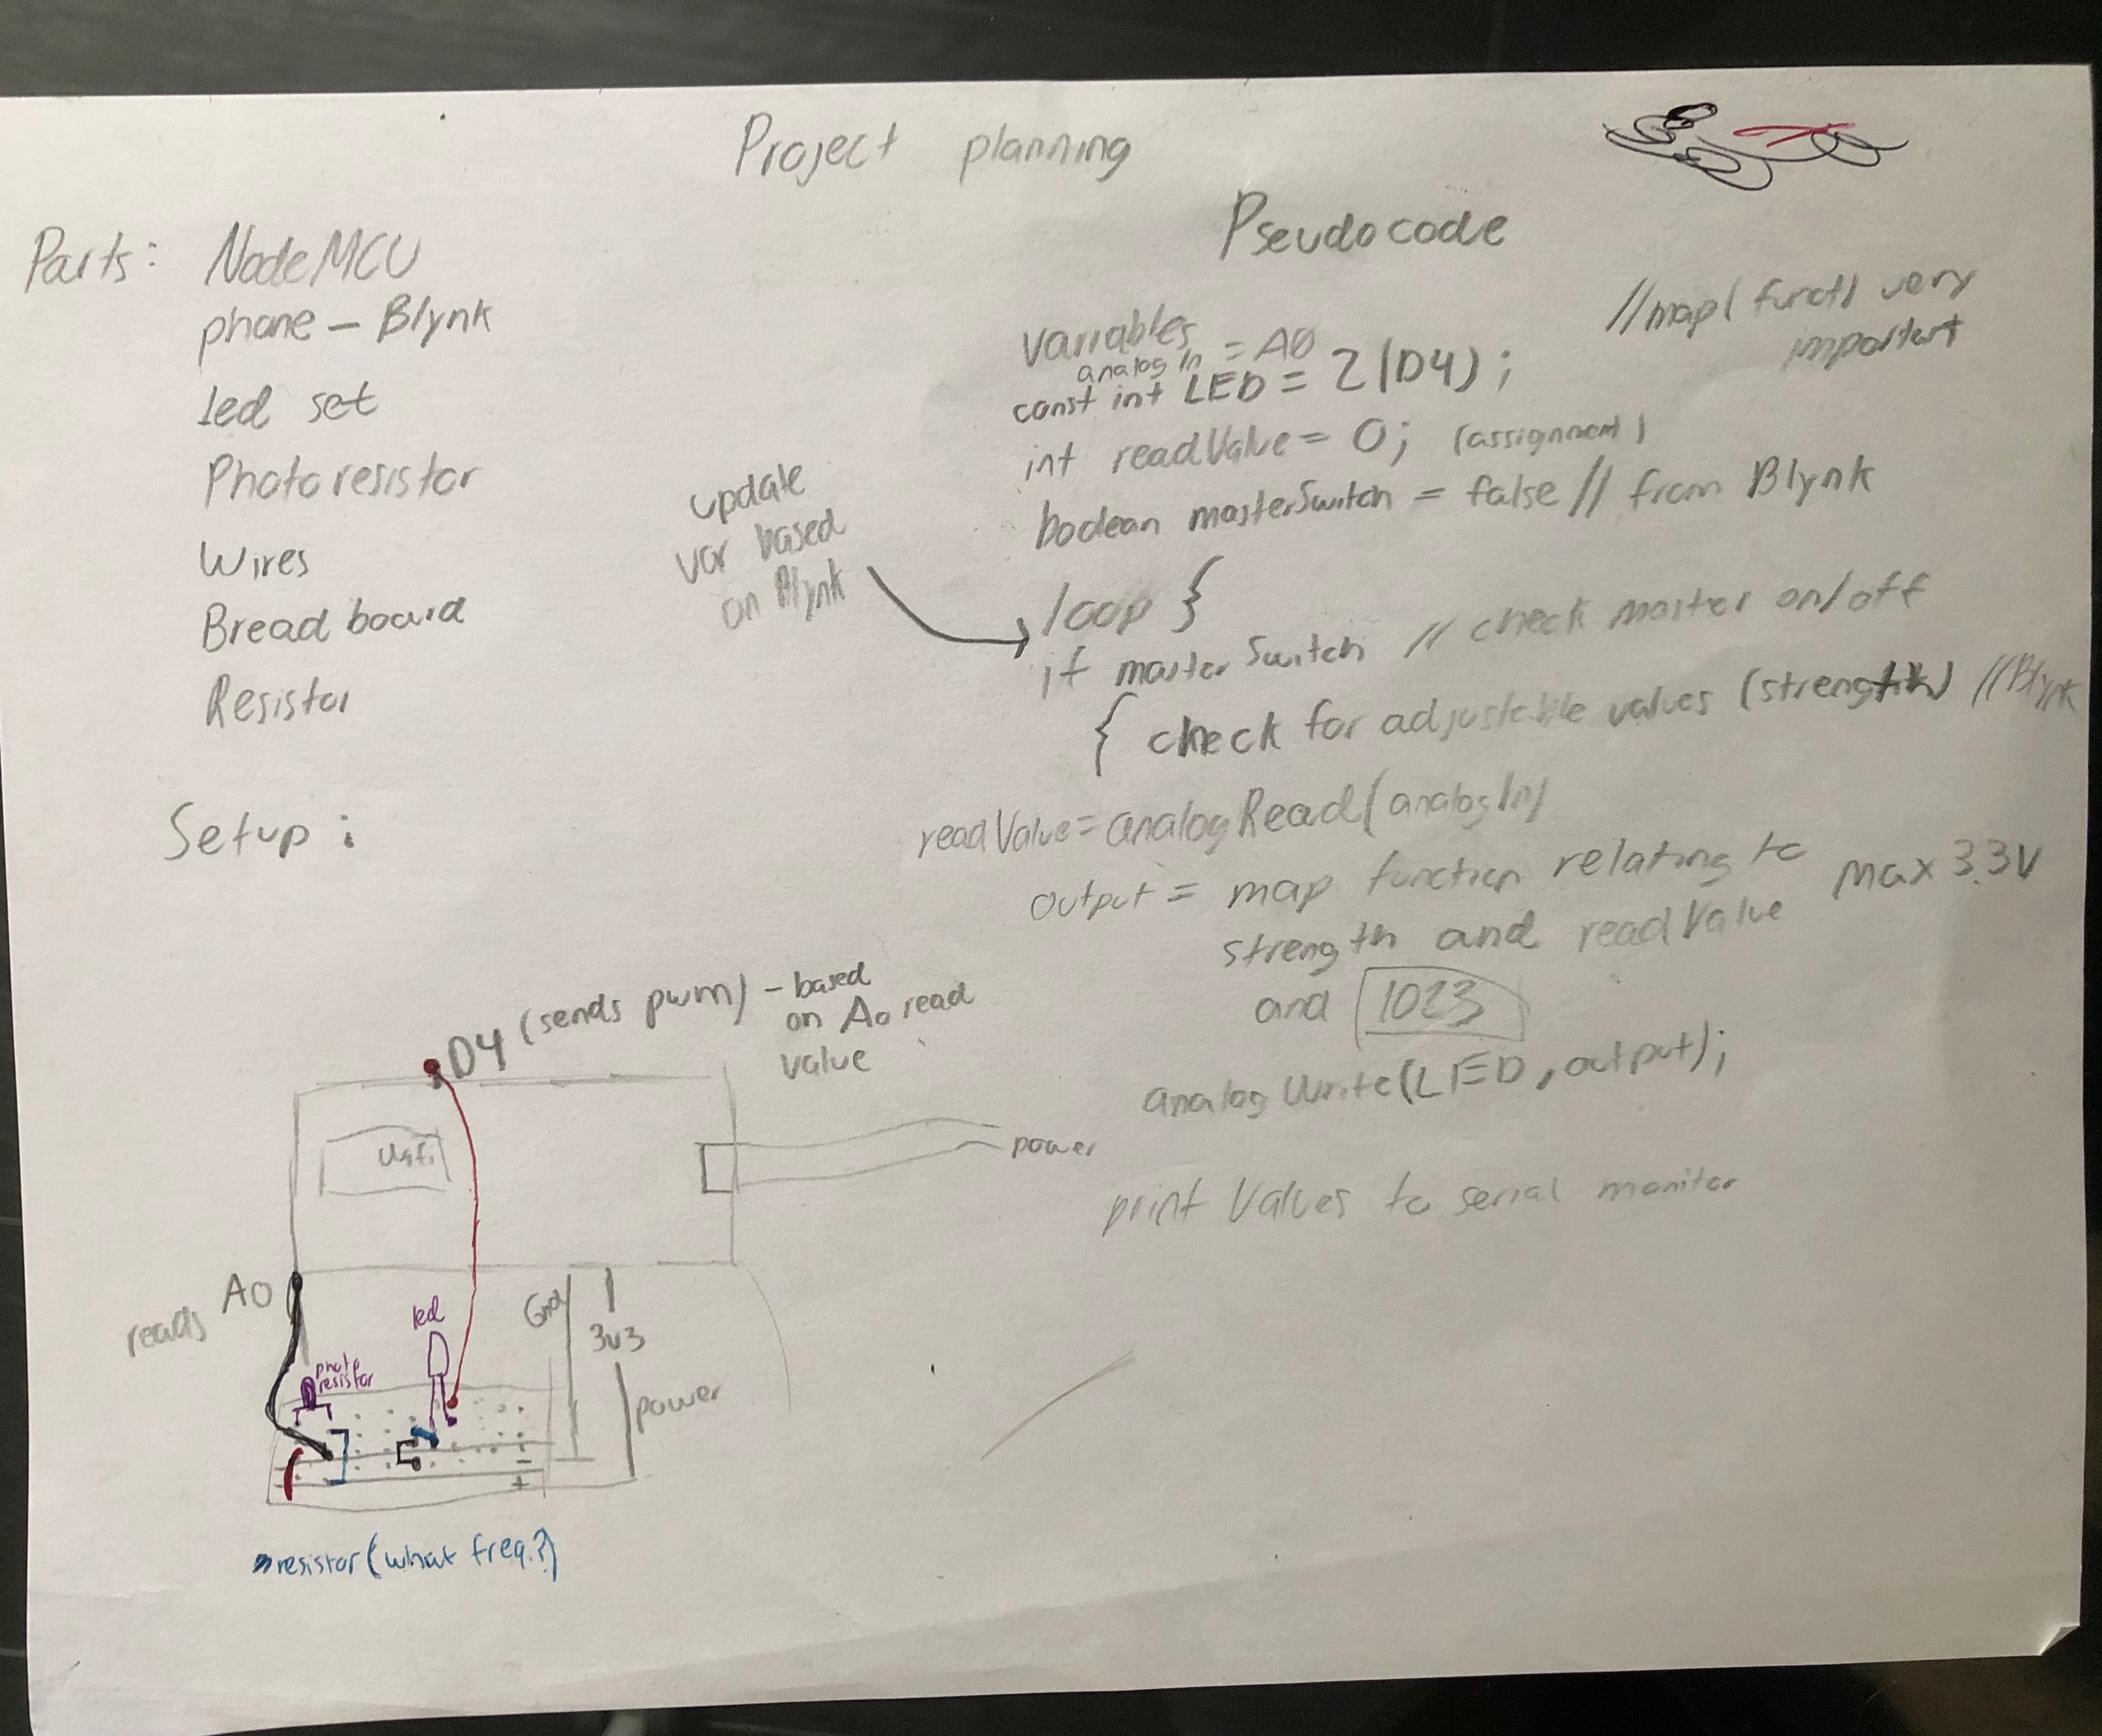 Project planning
Parts: NodeMCU
phone - Blynk
led set
Photoresistor
Wires
Bread board
Resistor
Pseudocode
//map( funct) very
important
Variables
analogIn = A0
const int LED = 2(D4);
int readValue = 0; (assignment)
boolean masterSwitch = false // from Blynk
update
var based
on Blynk
loop {
if masterSwitch // check master on/off
{ check for adjustable values (strength) //Blynk
readValue = analogRead(analogIn)
output = map function relating to
strength and readValue
max 3.3V
and 1023
analogWrite(LED, output);
print values to serial monitor
Setup:
D4 (sends pwm) - based
on A0 read
value
Wifi
power
A0
reads
led
photo
resistor
Gnd
3v3
power
-
+
resistor (what freq.?)